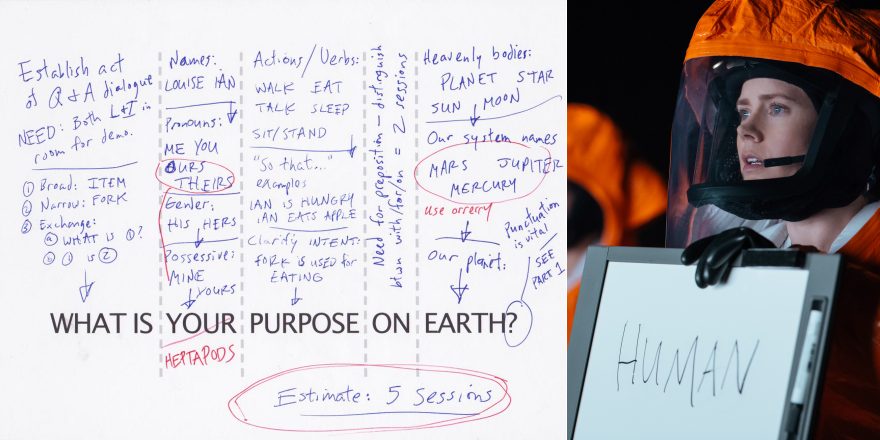 Establish act
of Q & A dialogue
NEED: Both L+I in
room for demo.
① Broad: ITEM
② Narrow: FORK
③ Exchange:
ⓐ WHAT IS ①?
ⓑ ① is ②
Names:
LOUISE IAN
Pronouns:
ME YOU
OURS
THEIRS
Gender:
HIS HERS
Possessive:
MINE
YOURS
Actions/Verbs:
WALK EAT
TALK SLEEP
SIT/STAND
"So that..."
examples
IAN IS HUNGRY
IAN EATS APPLE
Clarify INTENT:
FORK IS USED for
EATING
Need for preposition – distinguish
btwn with/for/on = 2 sessions
Heavenly bodies:
PLANET STAR
SUN MOON
Our system names
MARS JUPITER
MERCURY
USE orrery
Our planet:
Punctuation
is vital
SEE
PART 1
WHAT IS YOUR PURPOSE ON EARTH?
HEPTAPODS
Estimate: 5 Sessions
HUMAN